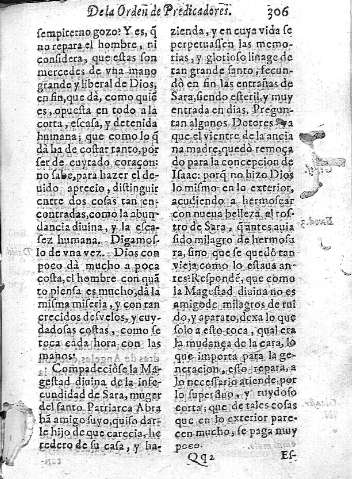 De la Orden de Predicadores. 306
sempiterno gozo? Y es, q̃
no repara el hombre, ni
considera, que estas son
mercedes de vna mano
grande y liberal de Dios,
en fin, que dà, como quiẽ
es, opuesta en todo a la
corta, escasa, y detenida
humana; que como lo q̃
dà ha de costar tanto, por
ser de cuytado coraçon:
no sabe, para hazer el de-
uido aprecio, distinguir
entre dos cosas tan en-
contradas, como la abun-
dancia diuina, y la esca-
sez humana. Digamos-
lo de vna vez. Dios con
poco dà mucho a poca
costa, el hombre con quã
to piensa es mucho, dà la
misma miseria, y con tan
crecidos desvelos, y cuy-
dadosas costas, como se
toca cada hora con las
manos.
Compadeciòse la Ma-
gestad diuina de la infe-
cundidad de Sara, muger
del santo Patriarca Abra
hã amigo suyo, quiso dar-
le hijo de que carecia, he
redero de su casa, y ha-
zienda, y en cuya vida se
perpetuassen las memo-
rias, y glorioso linage de
tan grande santo, fecun-
dò en fin las entrañas de
Sara, siendo esteril, y muy
entrada en dias. Pregun-
tan algunos Dotores ya
que el vientre de la ancia
na madre, quedò remoça
do para la concepcion de
Isaac: porq̃ no hizo Dios
lo mismo en lo exterior,
acudiendo a hermosear
con nueua belleza, el ros-
tro de Sara, q̃ antes auia
sido milagro de hermosu
ra, sino que se quedò tan
vieja como lo estaua an-
tes: Respondẽ, que como
la Magestad diuina no es
amigo de milagros de rui
do, y aparato, dexa lo que
solo a esto toca, qual era
la mudança de la cara, lo
que importa para la ge-
neracion, esso repara, a
lo necessario atiende, por
lo superfluo, y ruydoso
corta; que de tales cosas
que en lo exterior pare-
cen mucho, se paga muy
poco.
Qq2 Es-